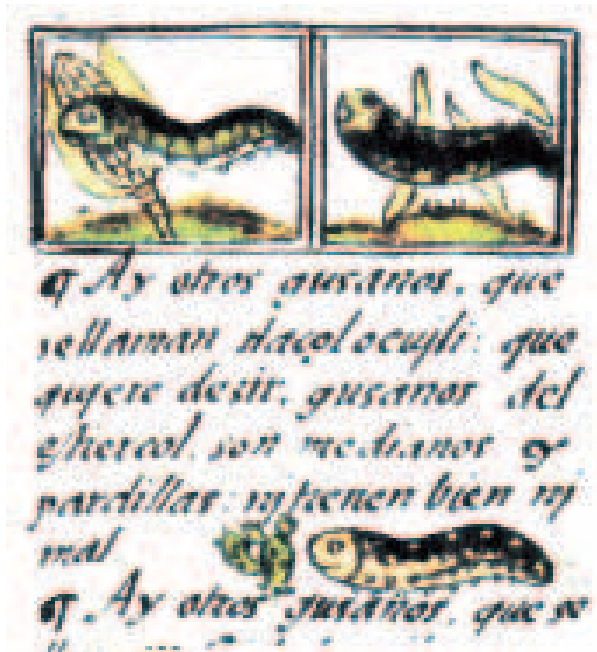 ¶ Ay otros gusanos, que
sellaman tlaçolocujli: que
qujere desir, gusanos del
esthiercol, son medianos y
pardillas: nj tienen bien nj
mal
¶ Ay otros gusanos, que se